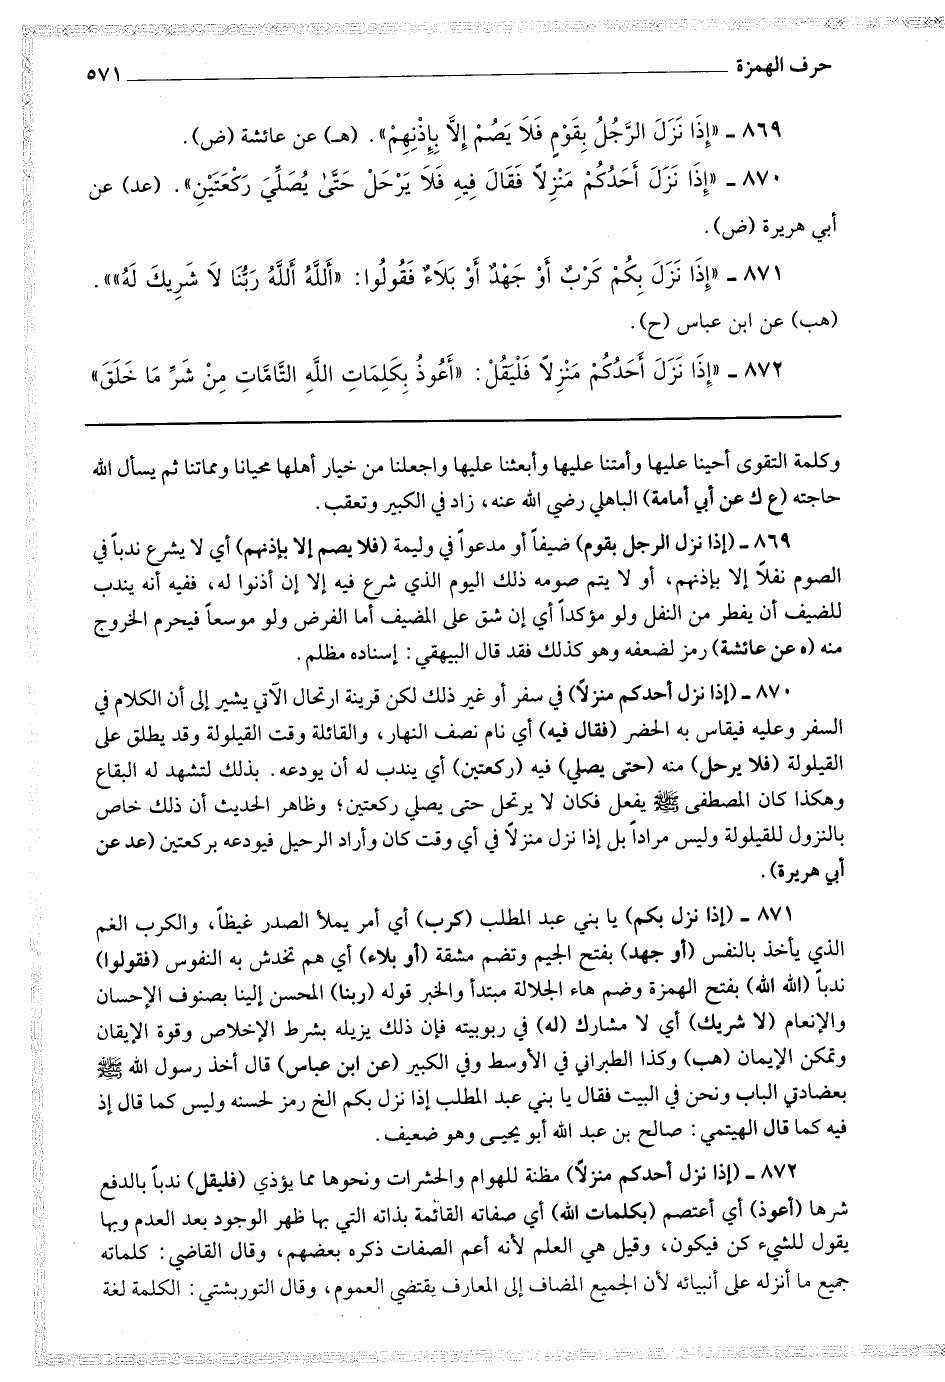 حرف الهمزة ٥٧١
٨٦٩ ـ «إِذَا نَزَلَ الرَّجُلُ بِقَوْمٍ فَلَا يَصُمْ إِلَّا بِإِذْنِهِمْ». (هـ) عن عائشة (ض).
٨٧٠ ـ «إِذَا نَزَلَ أَحَدُكُمْ مَنْزِلاً فَقَالَ فِيهِ فَلَا يَرْحَلْ حَتَّىٰ يُصَلِّيَ رَكْعَتَيْنِ». (عد) عن
أبي هريرة (ض).
٨٧١ ـ «إِذَا نَزَلَ بِكُمْ كَرْبٌ أَوْ جَهْدٌ أَوْ بَلَاءٌ فَقُولُوا: «أَللَّهُ أَللَّهُ رَبُّنَا لَا شَرِيكَ لَهُ»».
(هب) عن ابن عباس (ح).
٨٧٢ ـ «إِذَا نَزَلَ أَحَدُكُمْ مَنْزِلاً فَلْيَقُلْ: «أَعُوذُ بِكَلِمَاتِ اللَّهِ التَّامَّاتِ مِنْ شَرِّ مَا خَلَقَ»
وكلمة التقوى أحينا عليها وأمتنا عليها وأبعثنا عليها واجعلنا من خيار أهلها محيانا ومماتنا ثم يسأل الله
حاجته (ع ك عن أبي أمامة) الباهلي رضي الله عنه، زاد في الكبير وتعقب.
٨٦٩ ـ (إذا نزل الرجل بقوم) ضيفاً أو مدعواً في وليمة (فلا يصم إلا بإذنهم) أي لا يشرع ندباً في
الصوم نفلاً إلا بإذنهم، أو لا يتم صومه ذلك اليوم الذي شرع فيه إلا إن أذنوا له، ففيه أنه يندب
للضيف أن يفطر من النفل ولو مؤكداً أي إن شق على المضيف أما الفرض ولو موسعاً فيحرم الخروج
منه (ه عن عائشة) رمز لضعفه وهو كذلك فقد قال البيهقي: إسناده مظلم.
٨٧٠ ـ (إذا نزل أحدكم منزلاً) في سفر أو غير ذلك لكن قرينة ارتحال الآتي يشير إلى أن الكلام في
السفر وعليه فيقاس به الحضر (فقال فيه) أي نام نصف النهار، والقائلة وقت القيلولة وقد يطلق على
القيلولة (فلا يرحل) منه (حتى يصلي) فيه (ركعتين) أي يندب له أن يودعه. بذلك لتشهد له البقاع
وهكذا كان المصطفى ﷺ يفعل فكان لا يرتحل حتى يصلي ركعتين؛ وظاهر الحديث أن ذلك خاص
بالنزول للقيلولة وليس مراداً بل إذا نزل منزلاً في أي وقت كان وأراد الرحيل فيودعه بركعتين (عد عن
أبي هريرة).
٨٧١ ـ (إذا نزل بكم) يا بني عبد المطلب (كرب) أي أمر يملأ الصدر غيظاً، والكرب الغم
الذي يأخذ بالنفس (أو جهد) بفتح الجيم وتضم مشقة (أو بلاء) أي هم تخدش به النفوس (فقولوا)
ندباً (الله الله) بفتح الهمزة وضم هاء الجلالة مبتدأ والخبر قوله (ربنا) المحسن إلينا بصنوف الإحسان
والإنعام (لا شريك) أي لا مشارك (له) في ربوبيته فإن ذلك يزيله بشرط الإخلاص وقوة الإيقان
وتمكن الإيمان (هب) وكذا الطبراني في الأوسط وفي الكبير (عن ابن عباس) قال أخذ رسول الله ﷺ
بعضادتي الباب ونحن في البيت فقال يا بني عبد المطلب إذا نزل بكم الخ رمز لحسنه وليس كما قال إذ
فيه كما قال الهيتمي: صالح بن عبد الله أبو يحيـى وهو ضعيف.
٨٧٢ ـ (إذا نزل أحدكم منزلاً) مظنة للهوام والحشرات ونحوها مما يؤذي (فليقل) ندباً بالدفع
شرها (أعوذ) أي أعتصم (بكلمات الله) أي صفاته القائمة بذاته التي بها ظهر الوجود بعد العدم وبها
يقول للشيء كن فيكون، وقيل هي العلم لأنه أعم الصفات ذكره بعضهم، وقال القاضي: كلماته
جميع ما أنزله على أنبيائه لأن الجميع المضاف إلى المعارف يقتضي العموم، وقال التوربشتي: الكلمة لغة